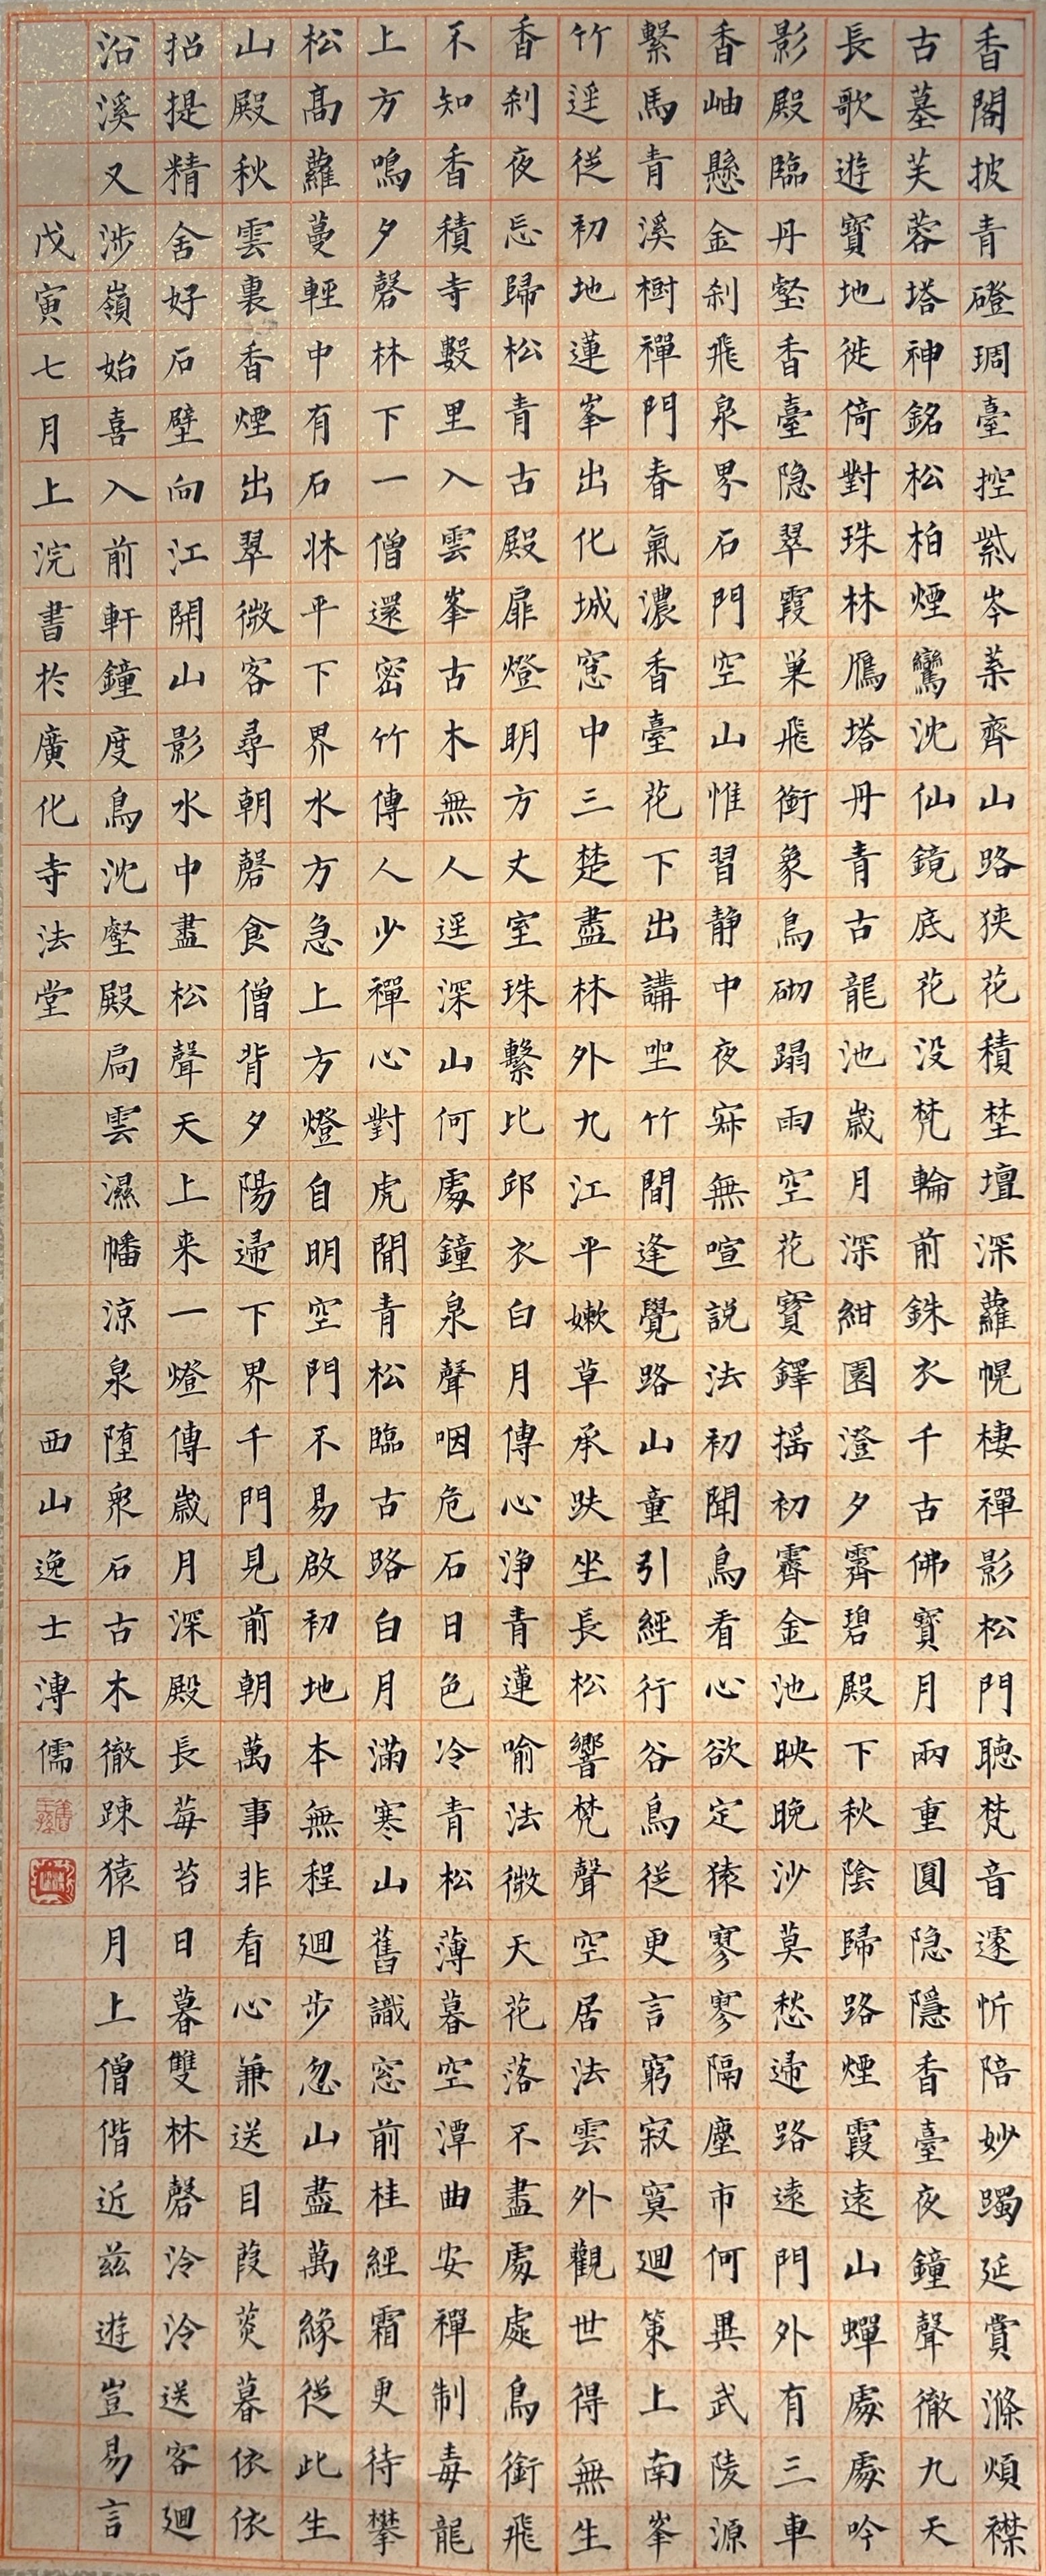 香閣披青磴琱臺控紫岑葉齊山路狹花積埜壇深蘿幌棲禪影松門聽梵音遽忻陪妙躅延賞滌煩襟
古墓芙蓉塔神銘松柏煙鸞沈仙鏡底花没梵輪前銖衣千古佛寶月兩重圓隐隱香臺夜鐘聲徹九天
長歌遊寶地徙倚對珠林鴈塔丹青古龍池歲月深紺園澄夕霽碧殿下秋陰歸路煙霞遠山蟬處處吟
影殿臨丹壑香臺隐翠霞巢飛銜象鳥砌蹋雨空花寳鐸揺初霽金池映晚沙莫愁歸路遠門外有三車
香岫懸金刹飛泉界石門空山惟習静中夜寂無喧説法初聞鳥看心欲定猿寥寥隔塵市何異武陵源
繫馬青溪樹禪門春氣濃香臺花下出講坐竹間逢覺路山童引經行谷鳥從更言窮寂寞迴策上南峯
竹逕從初地蓮峯出化城窓中三楚盡林外九江平嫩草承趺坐長松響梵聲空居法雲外觀世得無生
香刹夜忘歸松青古殿扉燈明方丈室珠繫比邱衣白月傳心浄青蓮喻法微天花落不盡處處鳥銜飛
不知香積寺數里入雲峯古木無人逕深山何處鐘泉聲咽危石日色冷青松薄暮空潭曲安禪制毒龍
上方鳴夕磬林下一僧還密竹傳人少禪心對虎閒青松臨古路白月滿寒山舊識窓前桂經霜更待攀
松高蘿蔓輕中有石牀平下界水方急上方燈自明空門不易啟初地本無程迴步忽山盡萬緣從此生
山殿秋雲裏香煙出翠微客尋朝磬食僧背夕陽歸下界千門見前朝萬事非看心兼送目葭菼暮依依
招提精舍好石壁向江開山影水中盡松聲天上来一燈傳歲月深殿長莓苔日暮雙林磬泠泠送客迴
沿溪又涉嶺始喜入前軒鐘度鳥沈壑殿扃雲濕幡涼泉墮衆石古木徹踈猿月上僧偕近兹遊豈易言
戊寅七月上浣書於廣化寺法堂 西山逸士溥儒